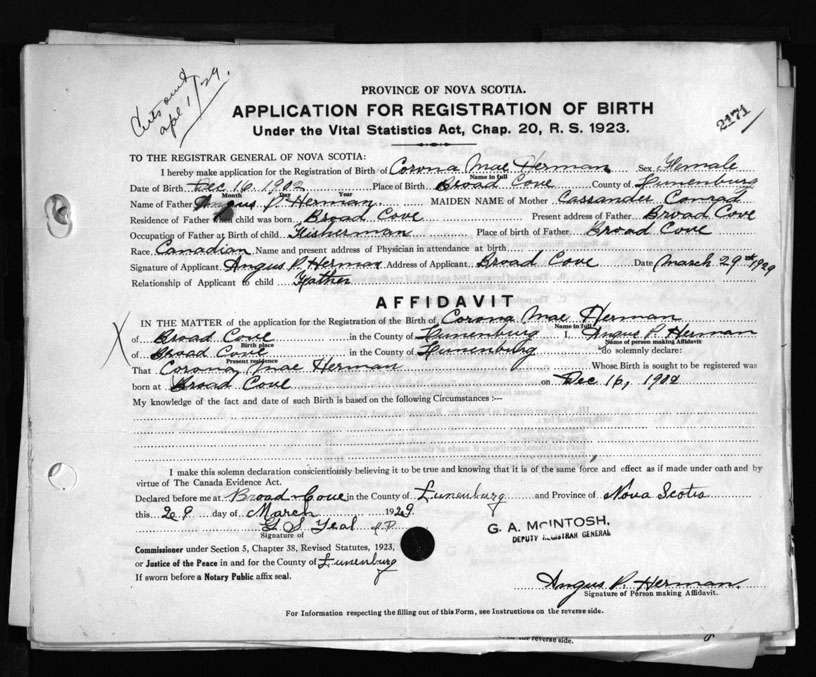 Certs sent
apl 1/29.
PROVINCE OF NOVA SCOTIA.
APPLICATION FOR REGISTRATION OF BIRTH
Under the Vital Statistics Act, Chap. 20, R. S. 1923.
2171
TO THE REGISTRAR GENERAL OF NOVA SCOTIA:
I hereby make application for the Registration of Birth of Corona Mae Herman Sex Female
Name in full
Date of Birth Dec 16. 1902 Place of Birth Broad Cove County of Lunenburg
Month Day Year
Name of Father Angus P. Herman MAIDEN NAME of Mother Cassander Conrad
Residence of Father when child was born Broad Cove Present address of Father Broad Cove
Occupation of Father at Birth of child Fisherman Place of birth of Father Broad Cove
Race Canadian Name and present address of Physician in attendance at birth
Signature of Applicant Angus P. Herman Address of Applicant Broad Cove Date March 29th 1929
Relationship of Applicant to child Father
AFFIDAVIT
IN THE MATTER of the application for the Registration of the Birth of Corona Mae Herman
Name in full
of Broad Cove in the County of Lunenburg I, Angus P. Herman
Birth place Name of person making Affidavit
of Broad Cove in the County of Lunenburg do solemnly declare:
Present residence
That Corona Mae Herman Whose Birth is sought to be registered was
born at Broad Cove on Dec 16, 1902
My knowledge of the fact and date of such Birth is based on the following Circumstances:—
I make this solemn declaration conscientiously believing it to be true and knowing that it is of the same force and effect as if made under oath and by
virtue of The Canada Evidence Act.
Declared before me at Broad Cove in the County of Lunenburg and Province of Nova Scotia
this 29 day of March 1929
G. S. Teal J.P.
Signature of
G. A. McINTOSH,
DEPUTY REGISTRAR GENERAL
Commissioner under Section 5, Chapter 38, Revised Statutes, 1923,
or Justice of the Peace in and for the County of Lunenburg
If sworn before a Notary Public affix seal.
Angus P. Herman.
Signature of Person making Affidavit.
For Information respecting the filling out of this Form, see Instructions on the reverse side.
on the reverse side.